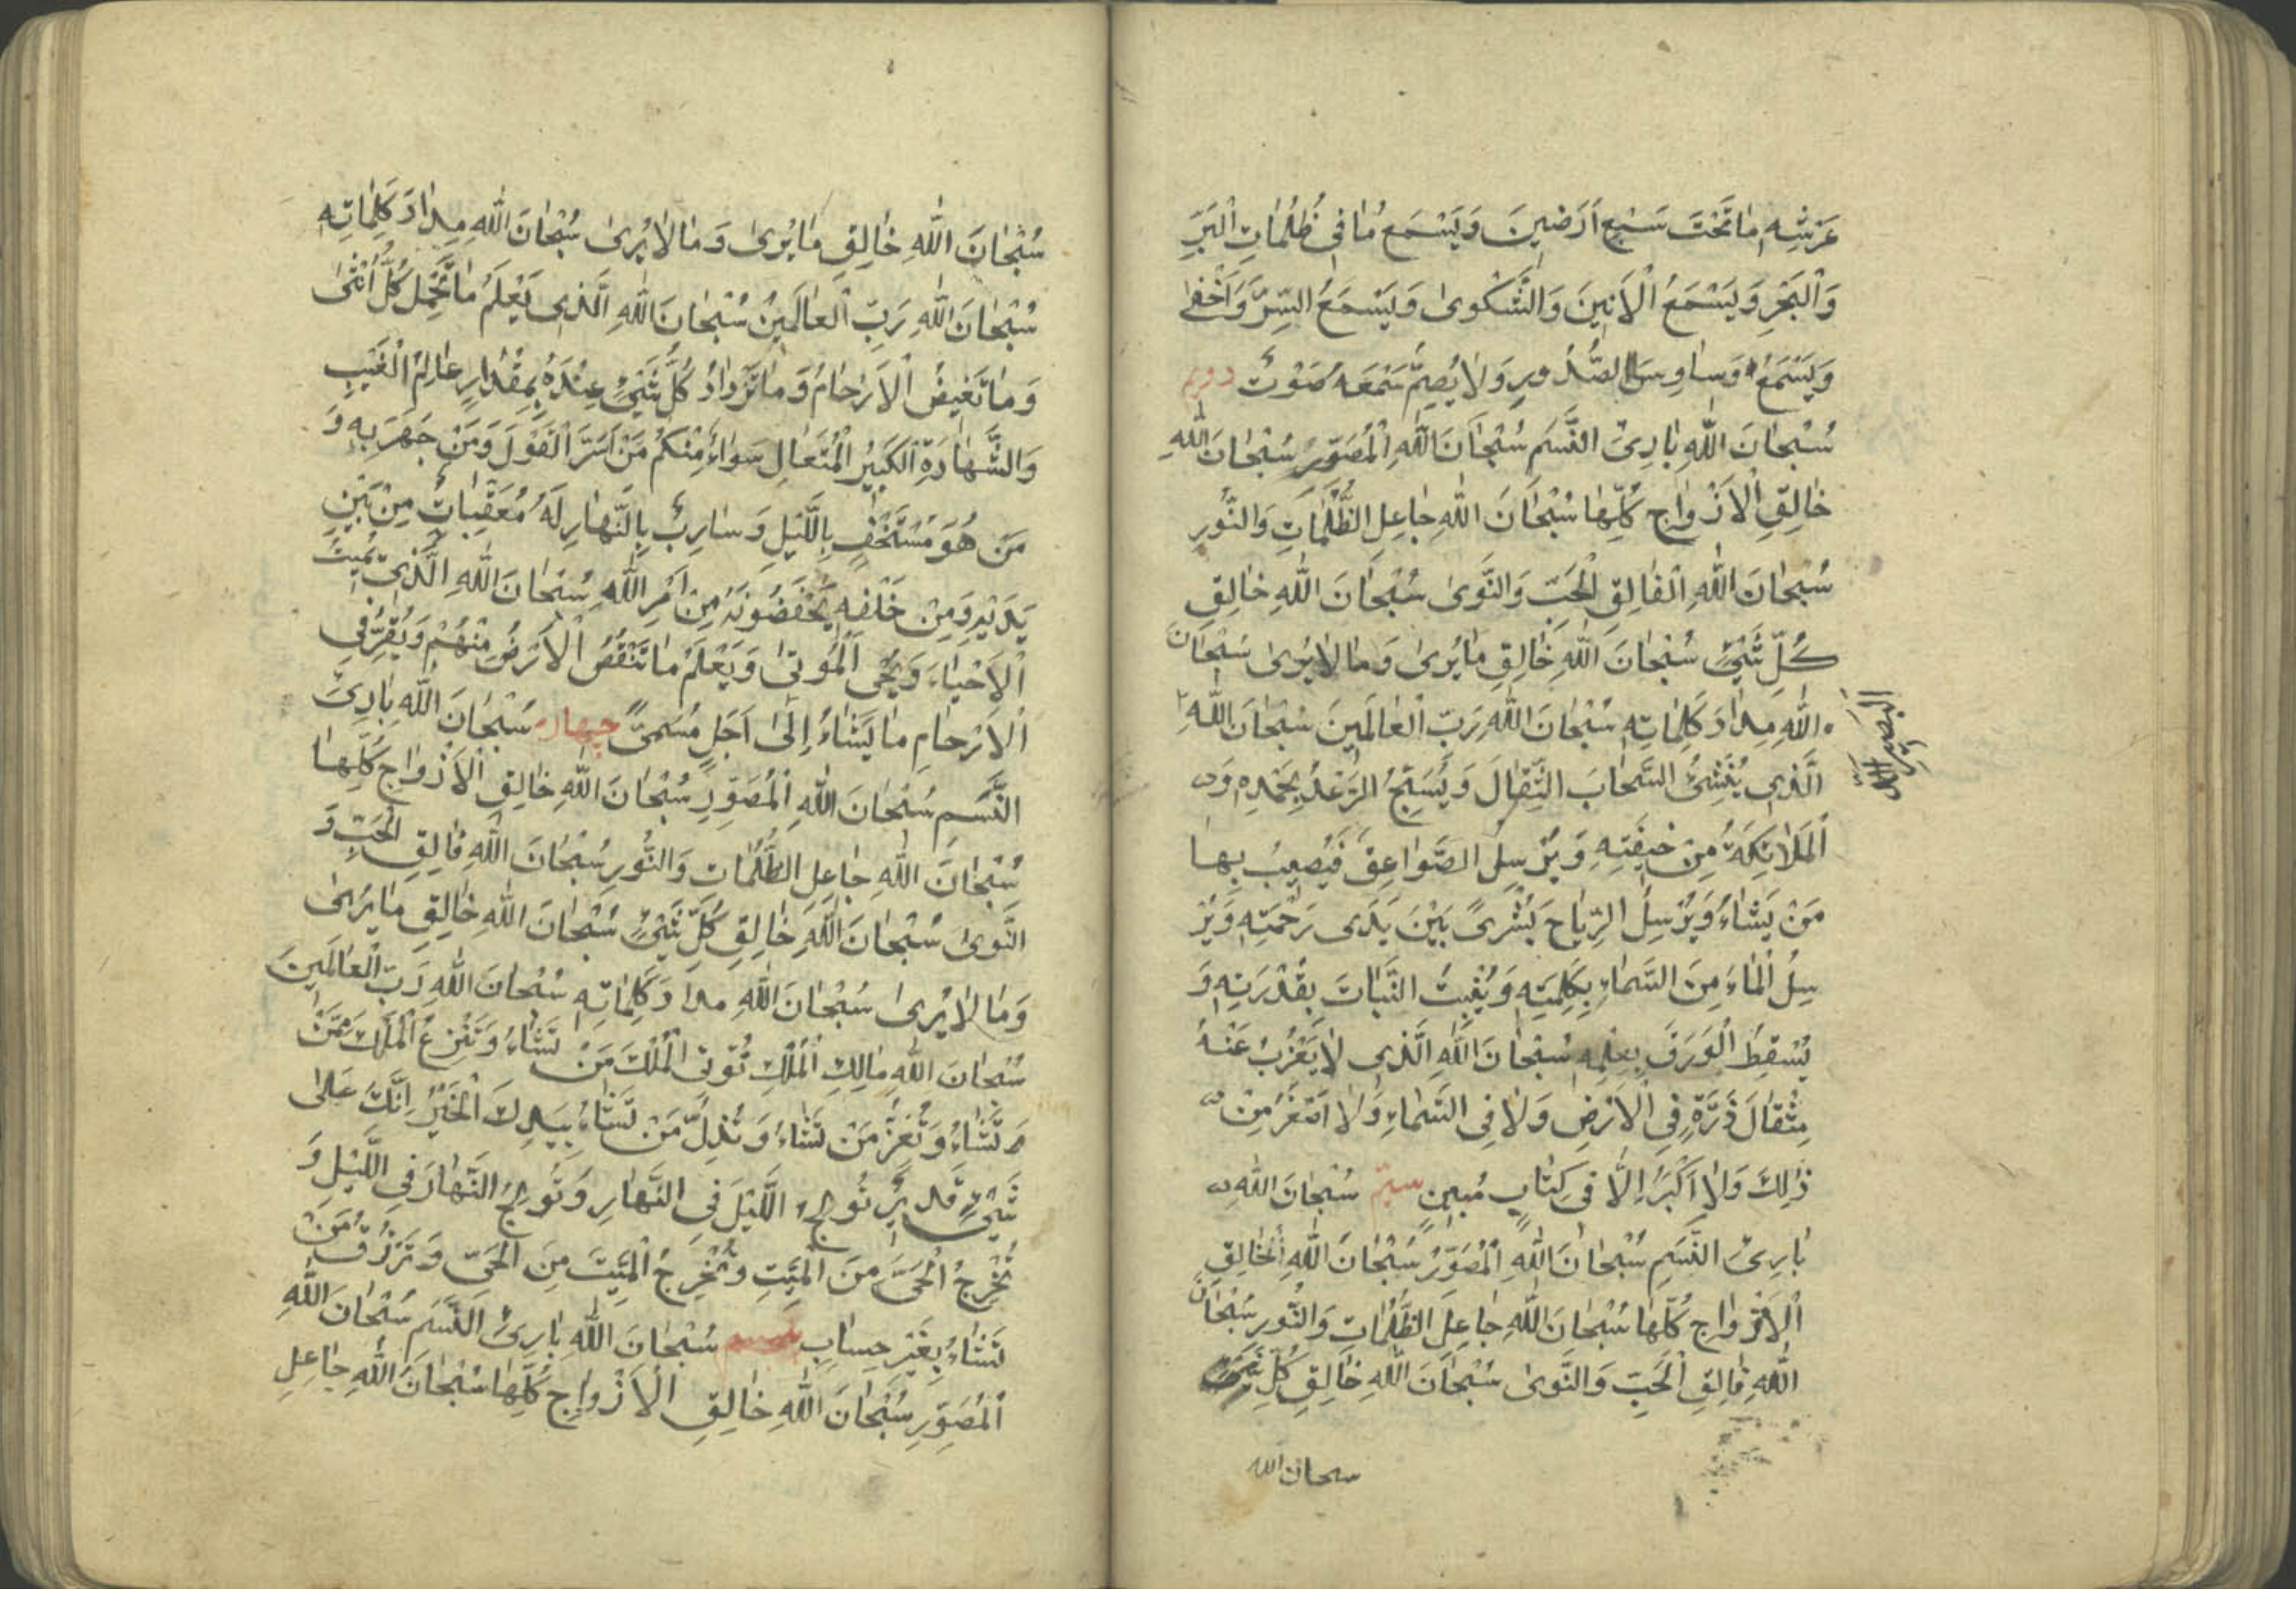 عَرْشِهِ مٰا تَحْتَ سَبْعِ اَرَضِينَ وَيَسْمَعُ مٰا فِى ظُلُمٰاتِ الْبَرِّ
وَالْبَحْرِ وَيَسْمَعُ الْاَنِينَ وَالشَّكْوىٰ وَيَسْمَعُ السِّرَّ وَاَخْفىٰ
وَيَسْمَعُ وَسٰاوِسَ الصُّدُورِ وَلٰا يُصِمُّ سَمْعَهُ صَوْتٌ دويم
سُبْحٰانَ اللّٰهِ بٰارِئِ النَّسَمِ سُبْحٰانَ اللّٰهِ الْمُصَوِّرِ سُبْحٰانَ اللّٰهِ
خٰالِقِ الْاَزْوٰاجِ كُلِّهٰا سُبْحٰانَ اللّٰهِ جٰاعِلِ الظُّلُمٰاتِ وَالنُّورِ
سُبْحٰانَ اللّٰهِ الْفٰالِقِ الْحَبِّ وَالنَّوىٰ سُبْحٰانَ اللّٰهِ خٰالِقِ
كُلِّ شَيْءٍ سُبْحٰانَ اللّٰهِ خٰالِقِ مٰا يُرىٰ وَمٰا لٰا يُرىٰ سُبْحٰانَ
اللّٰهِ مِدٰادَ كَلِمٰاتِهِ سُبْحٰانَ اللّٰهِ رَبِّ الْعٰالَمِينَ سُبْحٰانَ اللّٰهِ
الَّذِى يُنْشِئُ السَّحٰابَ الثِّقٰالَ وَيُسَبِّحُ الرَّعْدُ بِحَمْدِهِ وَ
الْمَلٰائِكَةُ مِنْ خِيفَتِهِ وَيُرْسِلُ الصَّوٰاعِقَ فَيُصِيبُ بِهٰا
مَنْ يَشٰاءُ وَيُرْسِلُ الرِّيٰاحَ بُشْرىً بَيْنَ يَدَى رَحْمَتِهِ وَيُرْ
سِلُ الْمٰاءَ مِنَ السَّمٰاءِ بِكَلِمَتِهِ وَيُنْبِتُ النَّبٰاتَ بِقُدْرَتِهِ وَ
يُسْقِطُ الْوَرَقَ بِعِلْمِهِ سُبْحٰانَ اللّٰهِ الَّذِى لٰا يَعْزُبُ عَنْهُ
مِثْقٰالَ ذَرَّةٍ فِى الْاَرْضِ وَلٰا فِى السَّمٰاءِ وَلٰا اَصْغَرُ مِنْ
ذٰلِكَ وَلٰا اَكْبَرُ اِلّٰا فِى كِتٰابٍ مُبِينٍ سيم سُبْحٰانَ اللّٰهِ
بٰارِئِ النَّسَمِ سُبْحٰانَ اللّٰهِ الْمُصَوِّرِ سُبْحٰانَ اللّٰهِ الْخٰالِقِ
الْاَزْوٰاجِ كُلِّهٰا سُبْحٰانَ اللّٰهِ جٰاعِلِ الظُّلُمٰاتِ وَالنُّورِ سُبْحٰانَ
اللّٰهِ فٰالِقِ الْحَبِّ وَالنَّوىٰ سُبْحٰانَ اللّٰهِ خٰالِقِ كُلِّ شَيْءٍ
سبحان الله
سُبْحٰانَ اللّٰهِ خٰالِقِ مٰا يُرىٰ وَمٰا لٰا يُرىٰ سُبْحٰانَ اللّٰهِ مِدٰادَ كَلِمٰاتِهِ
سُبْحٰانَ اللّٰهِ رَبِّ الْعٰالَمِينَ سُبْحٰانَ اللّٰهِ الَّذِى يَعْلَمُ مٰا تَحْمِلُ كُلُّ اُنْثىٰ
وَمٰا تَغِيضُ الْاَرْحٰامُ وَمٰا تَزْدٰادُ كُلُّ شَيْءٍ عِنْدَهُ بِمِقْدٰارٍ عٰالِمُ الْغَيْبِ
وَالشَّهٰادَةِ الْكَبِيرُ الْمُتَعٰالِ سَوٰاءٌ مِنْكُمْ مَنْ اَسَرَّ الْقَوْلَ وَمَنْ جَهَرَ بِهِ وَ
مَنْ هُوَ مُسْتَخْفٍ بِاللَّيْلِ وَسٰارِبٌ بِالنَّهٰارِ لَهُ مُعَقِّبٰاتٌ مِنْ بَيْنِ
يَدَيْهِ وَمِنْ خَلْفِهِ يَحْفَضُونَهُ مِنْ اَمْرِ اللّٰهِ سُبْحٰانَ اللّٰهِ الَّذِى يُمِيتُ
الْاَحْيٰاءَ وَيُحْيِى الْمَوْتىٰ وَيَعْلَمُ مٰا تَنْقُصُ الْاَرْضُ مِنْهُمْ وَيُقِرُّ فِى
الْاَرْحٰامِ مٰا يَشٰاءُ اِلىٰ اَجَلٍ مُسَمىًّ چهارم سُبْحٰانَ اللّٰهِ بٰارِئِ
النَّسَمِ سُبْحٰانَ اللّٰهِ الْمُصَوِّرِ سُبْحٰانَ اللّٰهِ خٰالِقِ الْاَزْوٰاجِ كُلِّهٰا
سُبْحٰانَ اللّٰهِ جٰاعِلِ الظُّلُمٰاتِ وَالنُّورِ سُبْحٰانَ اللّٰهِ فٰالِقِ الْحَبِّ وَ
النَّوىٰ سُبْحٰانَ اللّٰهِ خٰالِقِ كُلِّ شَيْءٍ سُبْحٰانَ اللّٰهِ خٰالِقِ مٰا يُرىٰ
وَمٰا لٰا يُرىٰ سُبْحٰانَ اللّٰهِ مِدٰادَ كَلِمٰاتِهِ سُبْحٰانَ اللّٰهِ رَبِّ الْعٰالَمِينَ
سُبْحٰانَ اللّٰهِ مٰالِكِ الْمُلْكِ تُؤْتِى الْمُلْكَ مَنْ تَشٰاءُ وَتَنْزِعُ الْمُلْكَ مِمَّنْ
تَشٰاءُ وَتُعِزُّ مَنْ تَشٰاءُ وَتُذِلُّ مَنْ تَشٰاءُ بِيَدِكَ الْخَيْرُ اِنَّكَ عَلىٰ
شَيْءٍ قَدِيرٌ تُولِجُ اللَّيْلَ فِى النَّهٰارِ وَتُولِجُ النَّهٰارَ فِى اللَّيْلِ وَ
تُخْرِجُ الْحَىَّ مِنَ الْمَيِّتِ وَتُخْرِجُ الْمَيِّتَ مِنَ الْحَىِّ وَتَرْزُقُ مَنْ
تَشٰاءُ بِغَيْرِ حِسٰابٍ سُبْحٰانَ اللّٰهِ بٰارِئِ النَّسَمِ سُبْحٰانَ اللّٰهِ
الْمُصَوِّرِ سُبْحٰانَ اللّٰهِ خٰالِقِ الْاَزْوٰاجِ كُلِّهٰا سُبْحٰانَ اللّٰهِ جٰاعِلِ